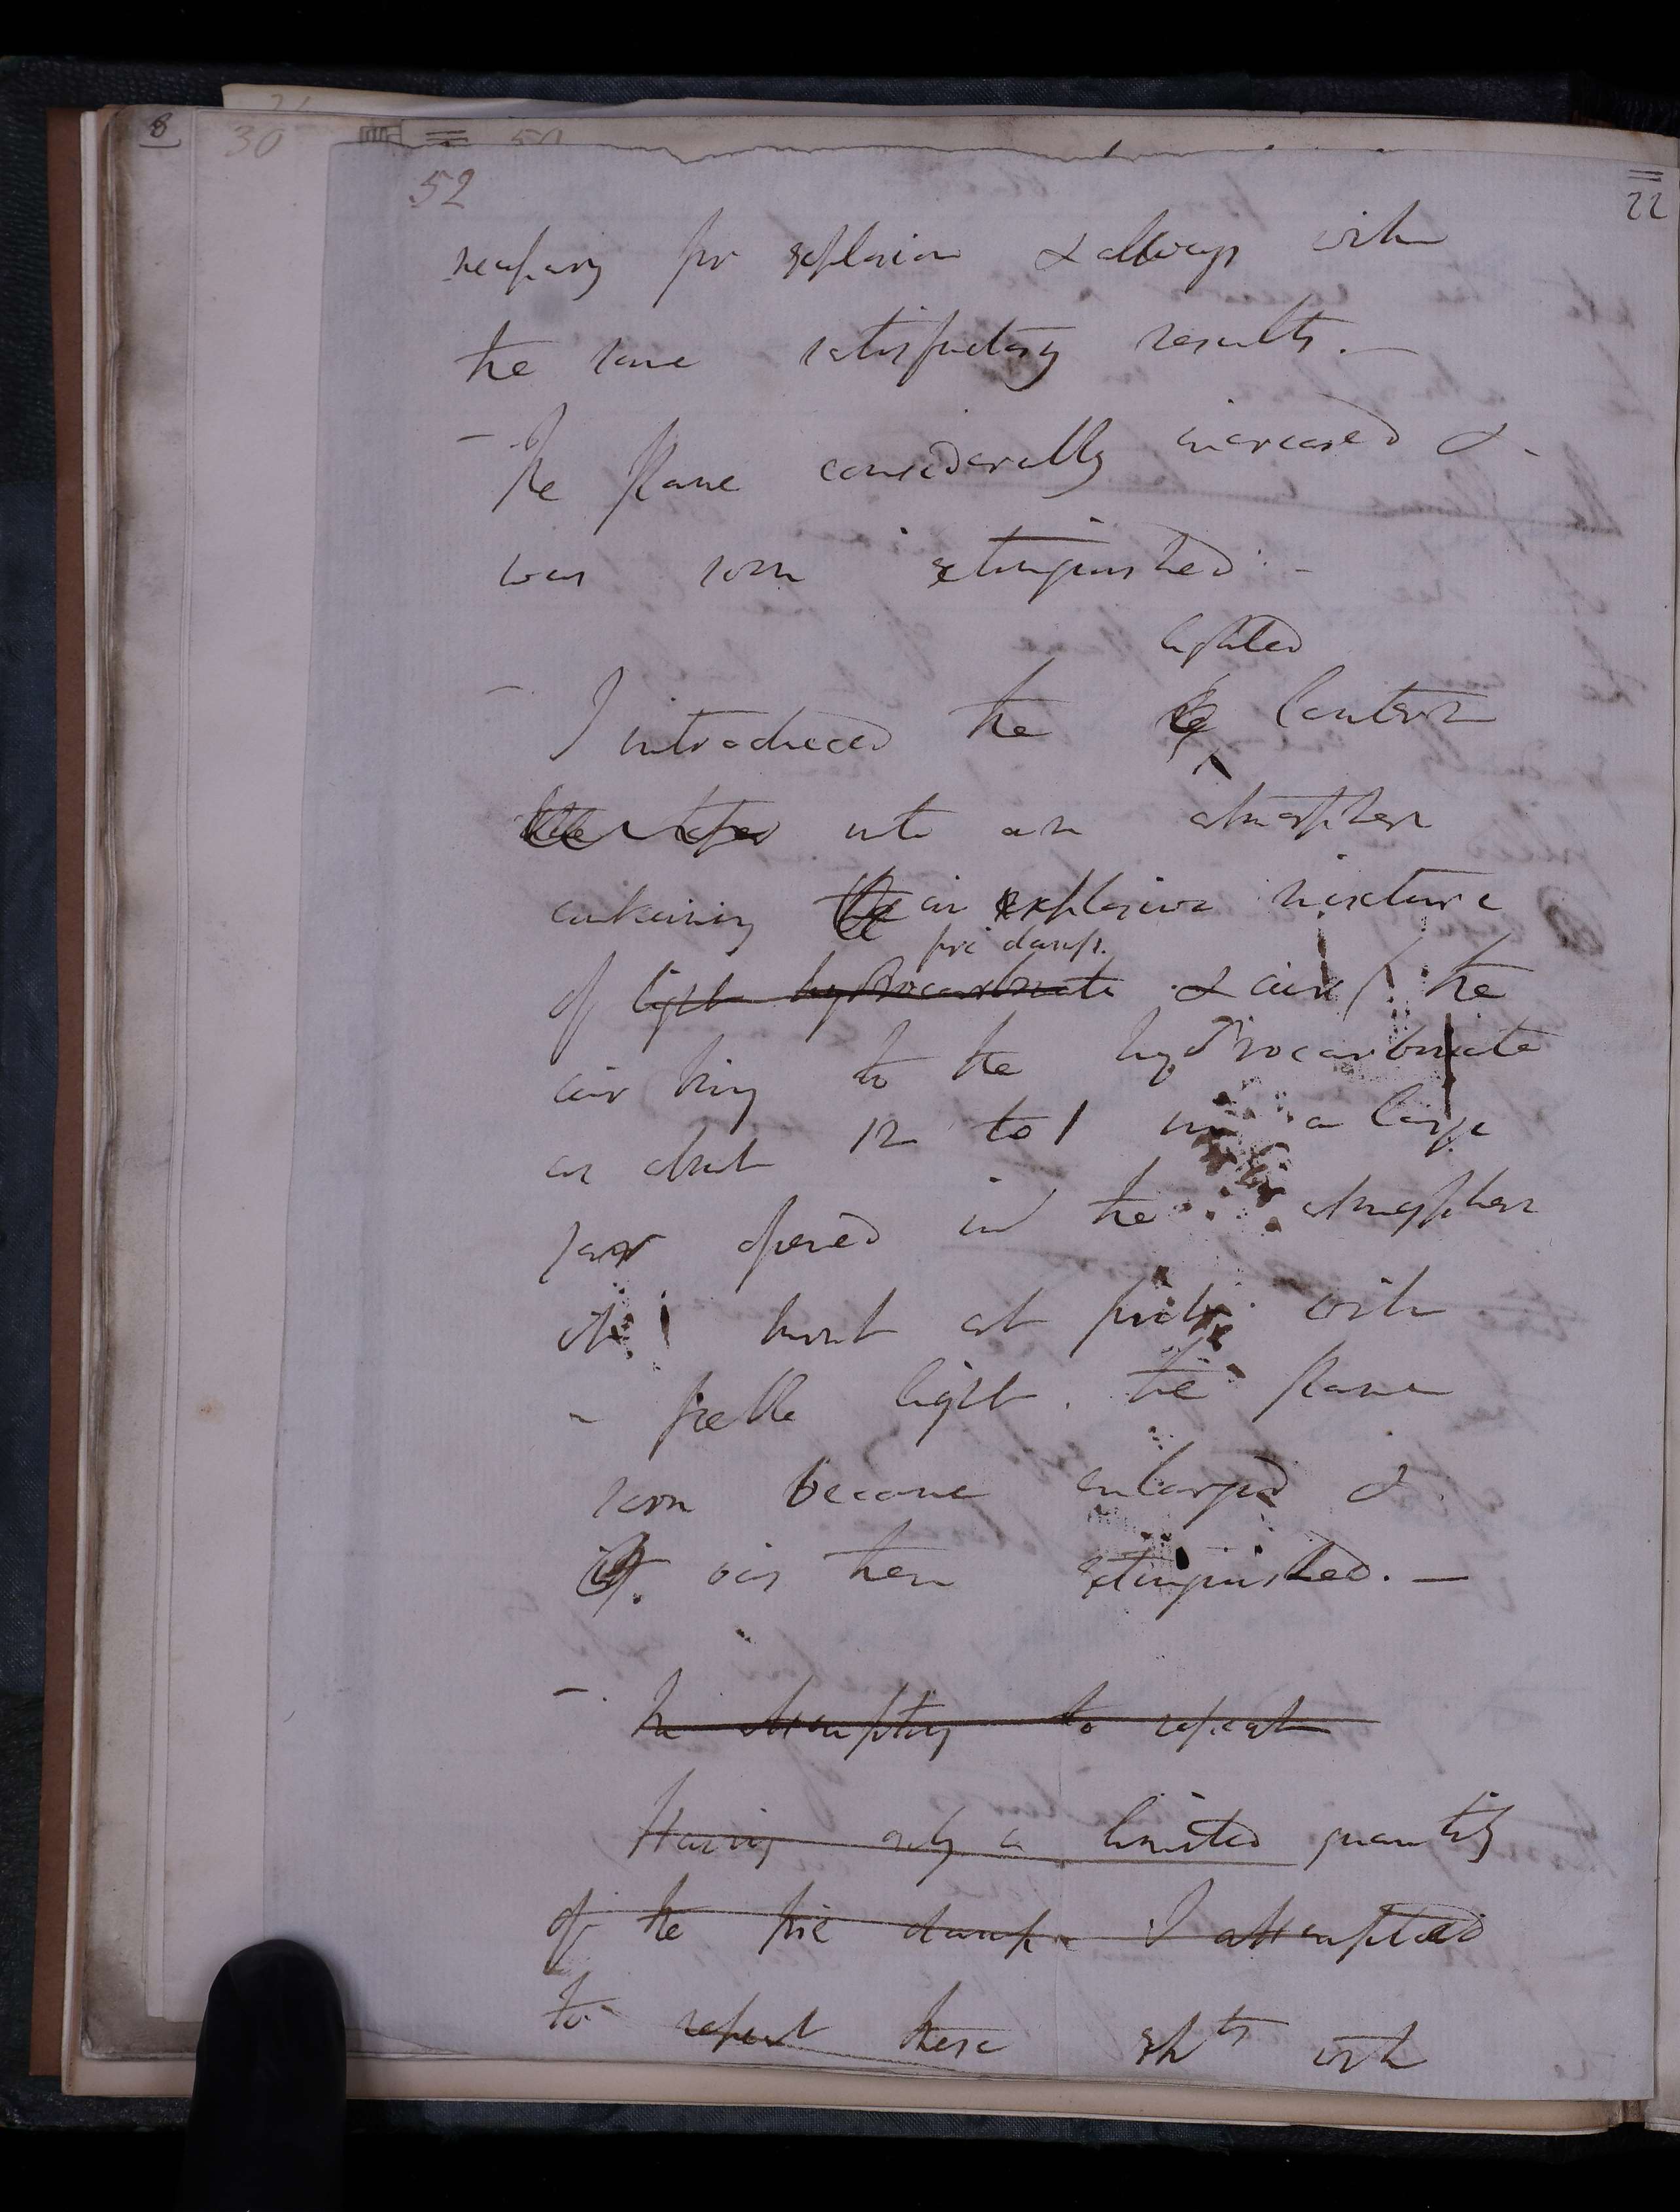 8
30
50
52
22
necessary for explosion & allways with
the same satisfactory results. —
– The flame considerably increased &
was soon extinguished. –
lighted
– I introduced the lantern
into an atmosphere
containing the an explosive mixture
fire damp.
of light hydrocarbonate & air / the
air being to the hydrocarbonate
as about 12 to 1 in a large
jar opened in the atmosphere
it burnt at first with
a feeble light. the flame
soon became enlarged &
it was then extinguished. —
– In attempting to repeat
Having only a limited quantity
of the fire damp I attempted
to repeat these expts with